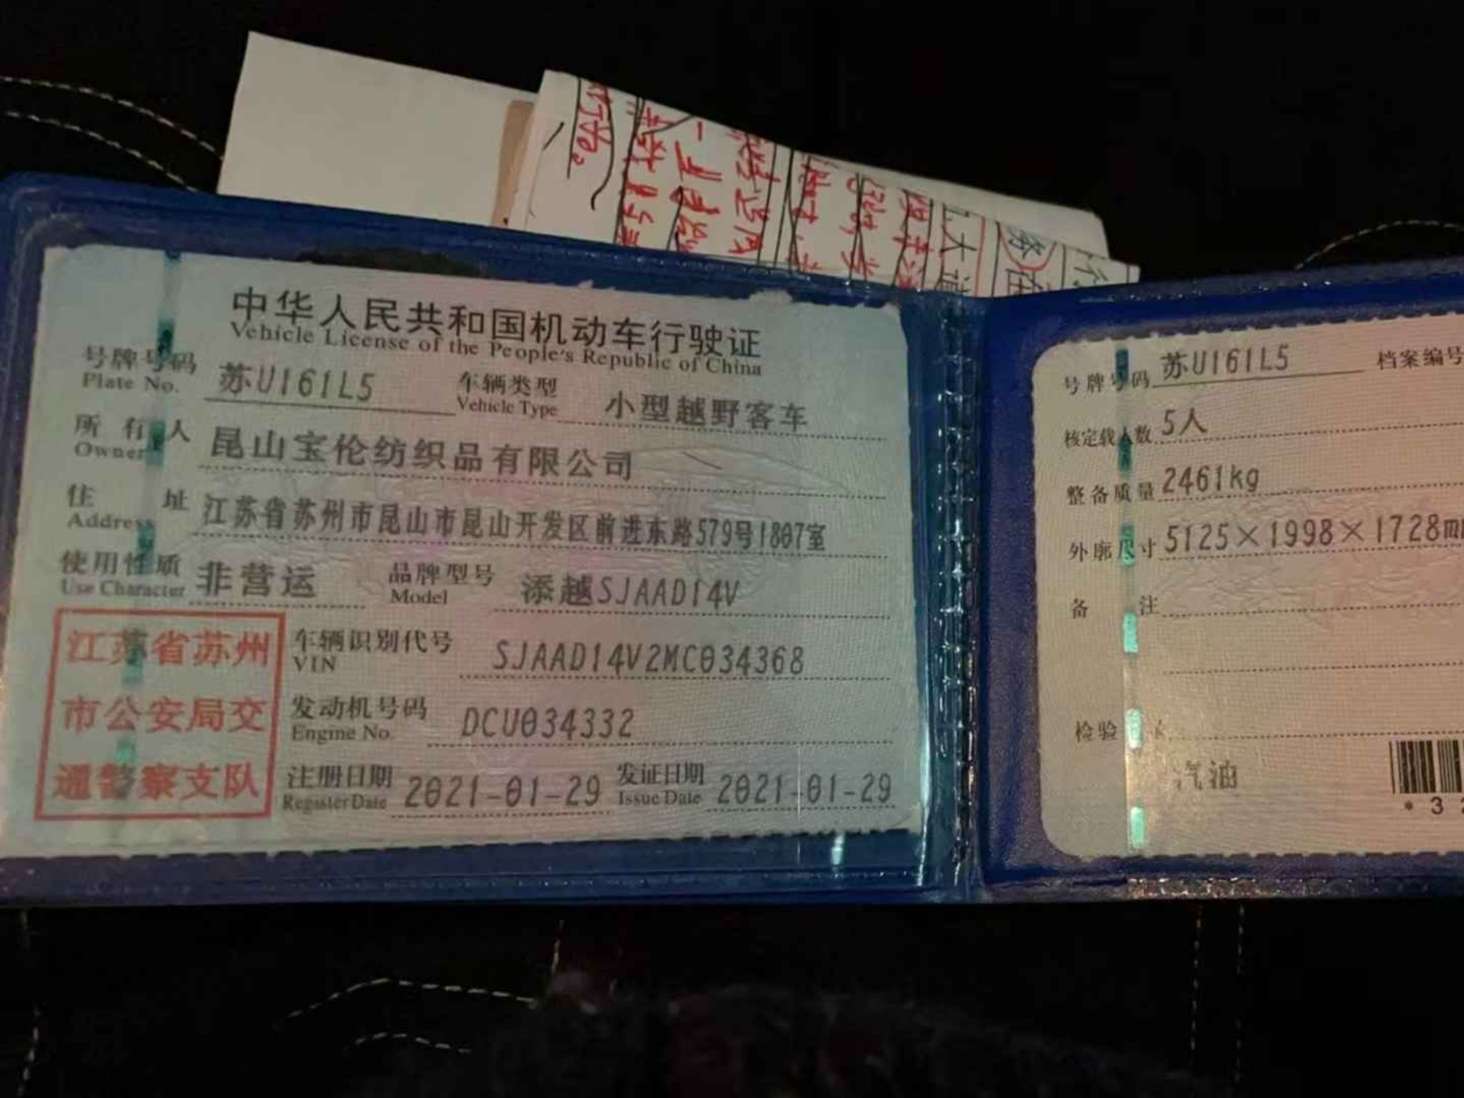 中华人民共和国机动车行驶证
Vehicle License of the People's Republic of China
号牌号码 苏U161L5 车辆类型 小型越野客车
Plate No. Vehicle Type
所有人 昆山宝伦纺织品有限公司
Owner
住址 江苏省苏州市昆山市昆山开发区前进东路579号1807室
Address
使用性质 非营运 品牌型号 添越SJAAD14V
Use Character Model
江苏省苏州
市公安局交
通警察支队
车辆识别代号 SJAAD14V2MC034368
VIN
发动机号码 DCU034332
Engine No.
注册日期 2021-01-29 发证日期 2021-01-29
Register Date Issue Date
号牌号码 苏U161L5 档案编号
核定载人数 5人
整备质量 2461kg
外廓尺寸 5125×1998×1728mm
备注
检验
汽油
*32